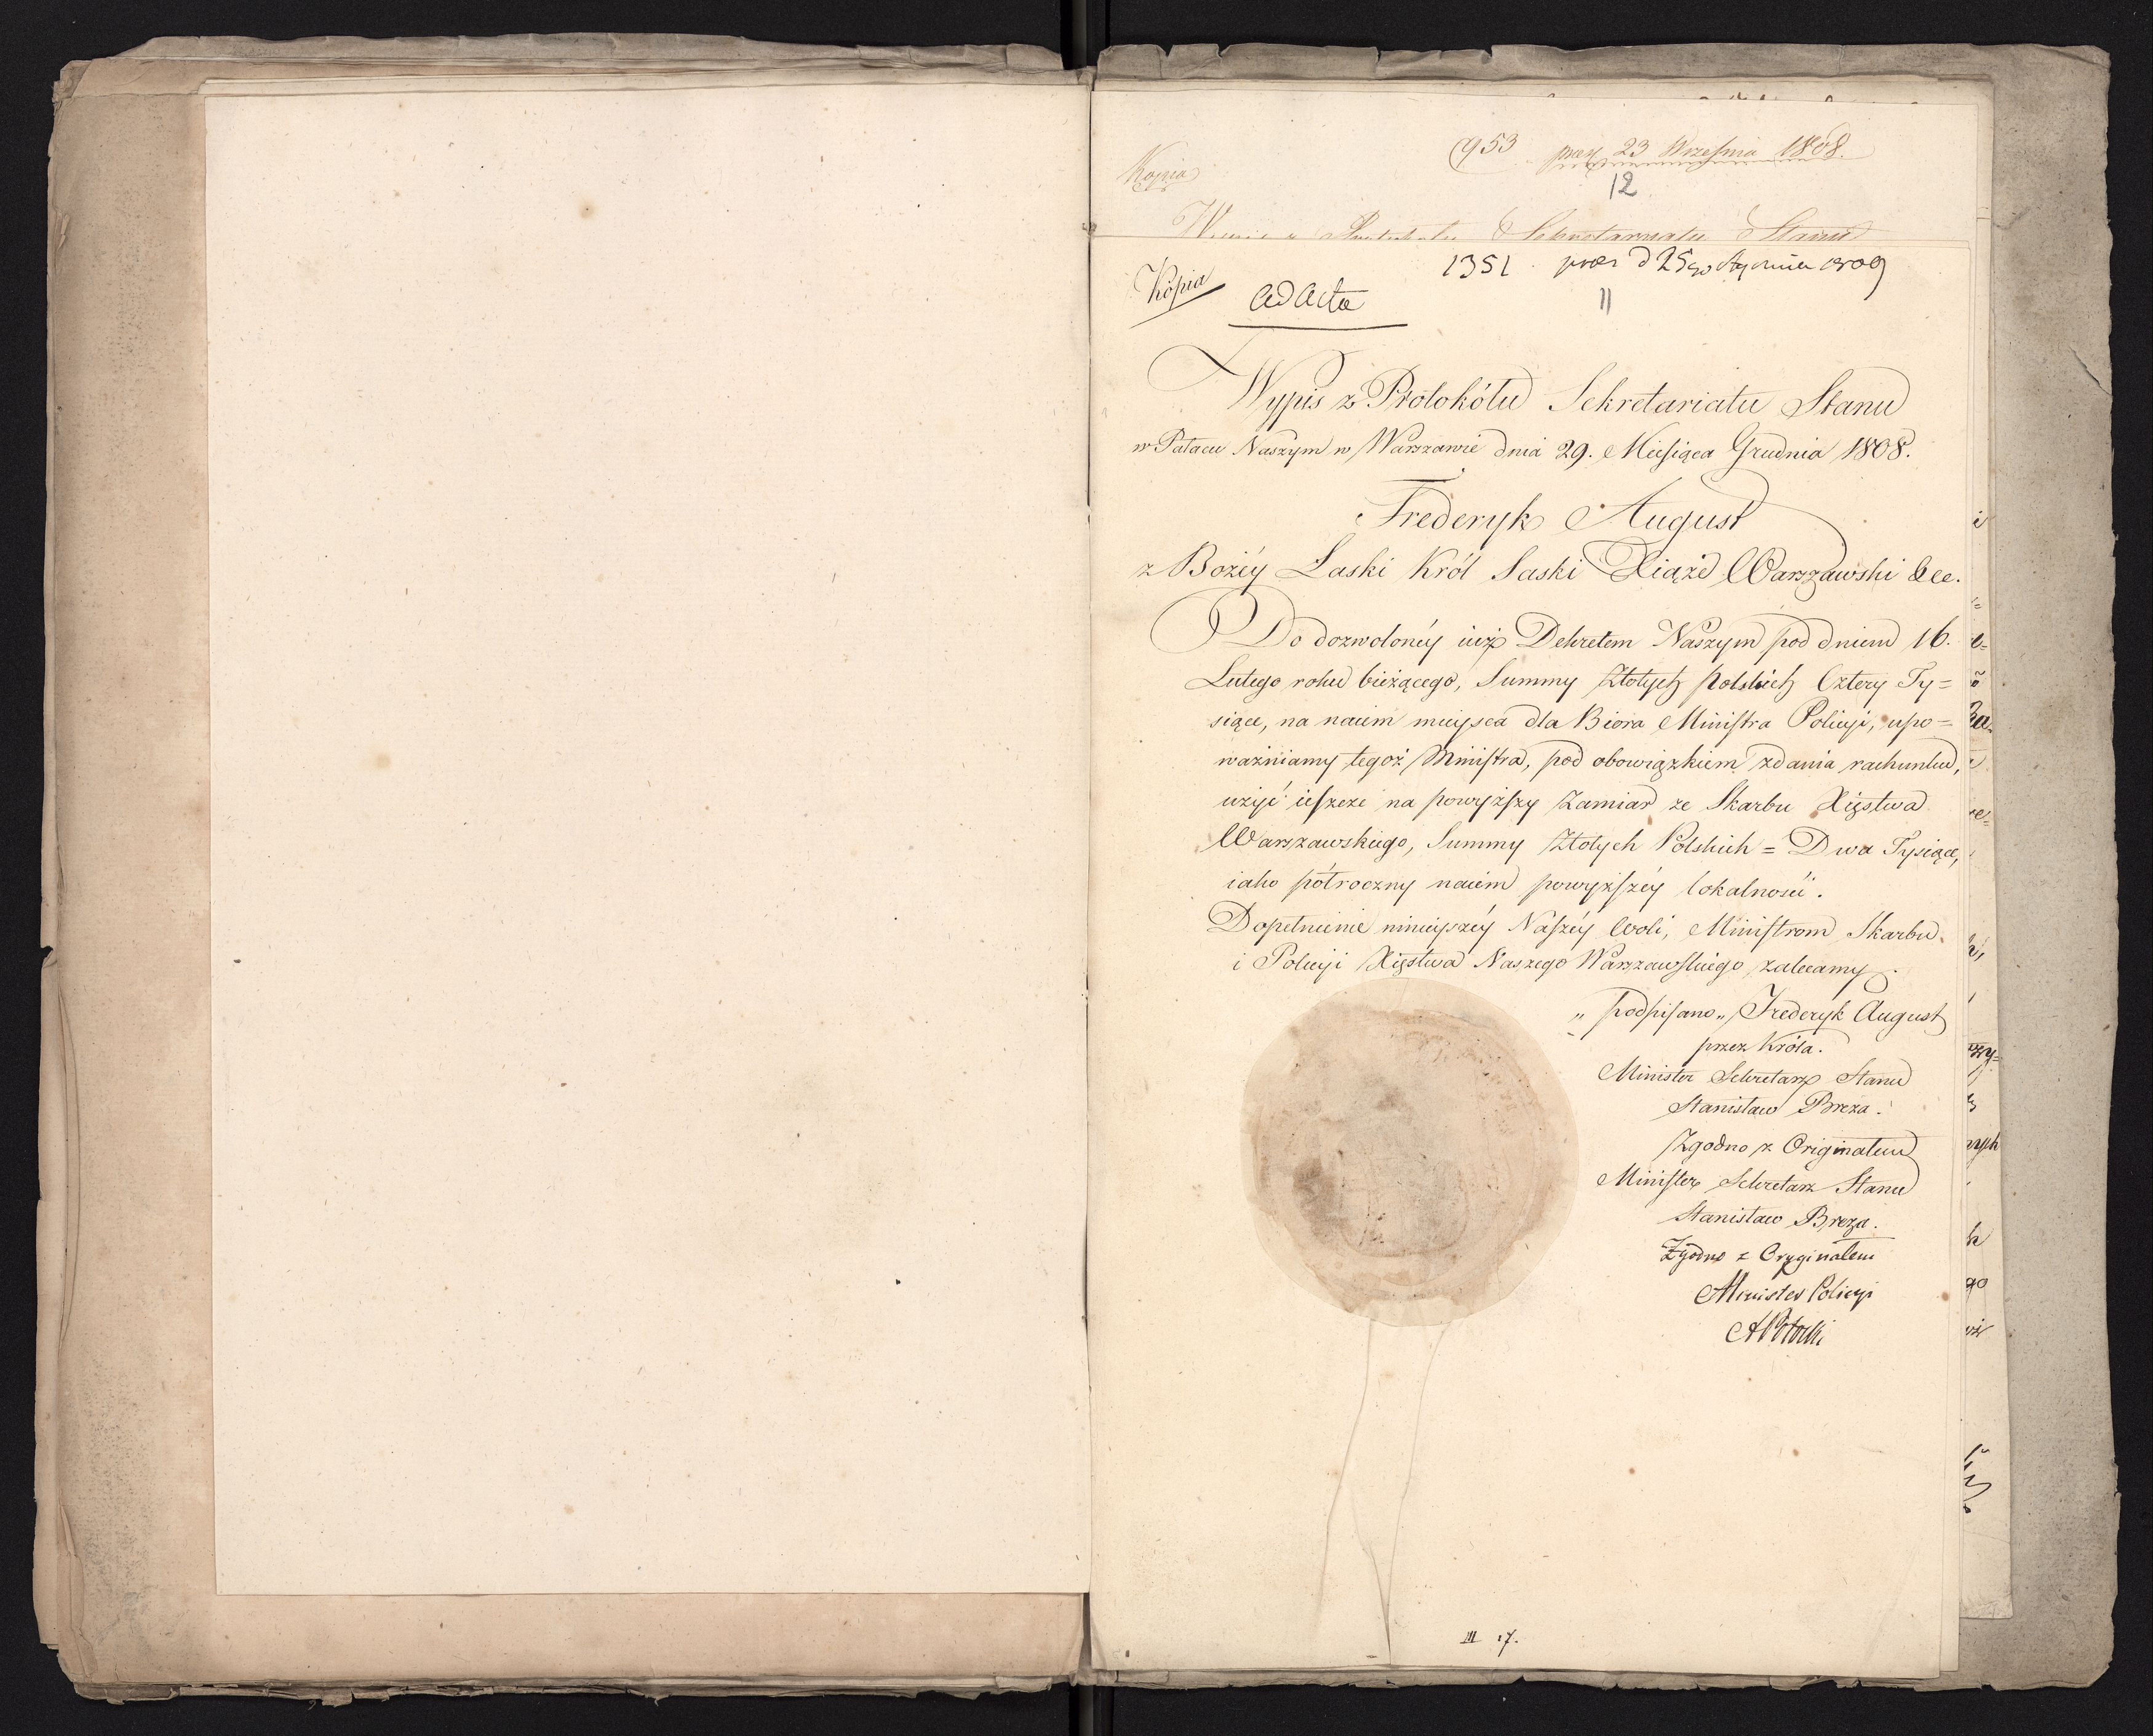 953 prez. 23 Wrzesnia 1808.
Kopia
12
Sekretariatu Stanu
1351. prez d 25go stycznia 1809
Kopia
ad acta
11
Wypis z Protokółu Sekretariatu Stanu
w Pałacu Naszym w Warszawie dnia 29. Miesiąca Grudnia 1808.
Frederyk August
z Bożéy Łaski Król Saski Xiąże Warszawski &cc.
Do dozwolonéy iuż Dekretem Naszym pod dniem 16.
Lutego roku bieżącego, Summy Złotych polskich Cztery Ty=
siące, na naiem mieysca dla Biora Ministra Policyi, upo=
ważniamy tegoż Ministra, pod obowiązkiem zdania rachunku,
użyć ieszcze na powyższy zamiar ze Skarbu Xięstwa
Warszawskiego, Summy Złotych Polskich = Dwa Tysiące,
iako półroczny naiem powyższéy lokalności.
Dopełnienie ninieyszéy Naszéy Woli, Ministrom Skarbu
i Policyi Xięstwa Naszego Warszawskiego zalecamy.
„podpisano„ Frederyk August
przez Króla.
Minister Sekretarz Stanu
Stanisław Breza.
Zgodno z Originałem
Minister Sekretarz Stanu
Stanisław Breza.
Zgodno z Oryginałem
Minister Policyi
APotocki
III 17.